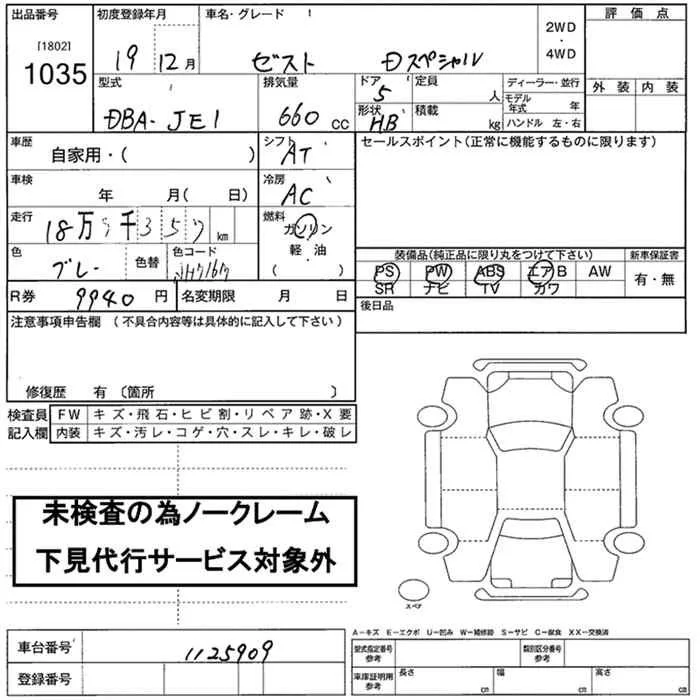 出品番号 初度登録年月 車名・グレード 評価点
[1802]
1035
19 12月 ゼスト Dスペシャル 2WD・4WD
外装 内装
型式 排気量 ドア 定員 ディーラー・並行
DBA-JE1 660 CC 5 人 モデル年式 年
形状 積載 kg ハンドル 左・右
HB
車歴 自家用・( ) シフト AT セールスポイント(正常に機能するものに限ります)
車検 年 月( 日) 冷房 AC
走行 18万 千357 km 燃料 ガソリン
軽・油
( )
色 ブルー 色替 色コード
装備品(純正品に限り丸をつけて下さい) 新車保証書
PS PW ABS エアB AW 有・無
SR ナビ TV カワ
R券 9940円 名変期限 月 日 後日品
注意事項申告欄 (不具合内容等は具体的に記入して下さい)
修復歴 有 (箇所 )
検査員 FW キズ・飛石・ヒビ割・リペア跡・X要
記入欄 内装 キズ・汚レ・コゲ・穴・スレ・キレ・破レ
未検査の為ノークレーム
下見代行サービス対象外
スペア
A−キズ E−エクボ U−凹み W−補修跡 S−サビ C−腐食 XX−交換済
車台番号 1125909 型式指定番号 参考 類別区分番号 参考
登録番号 車庫証明用 参考 長さ cm 幅 cm 高さ cm